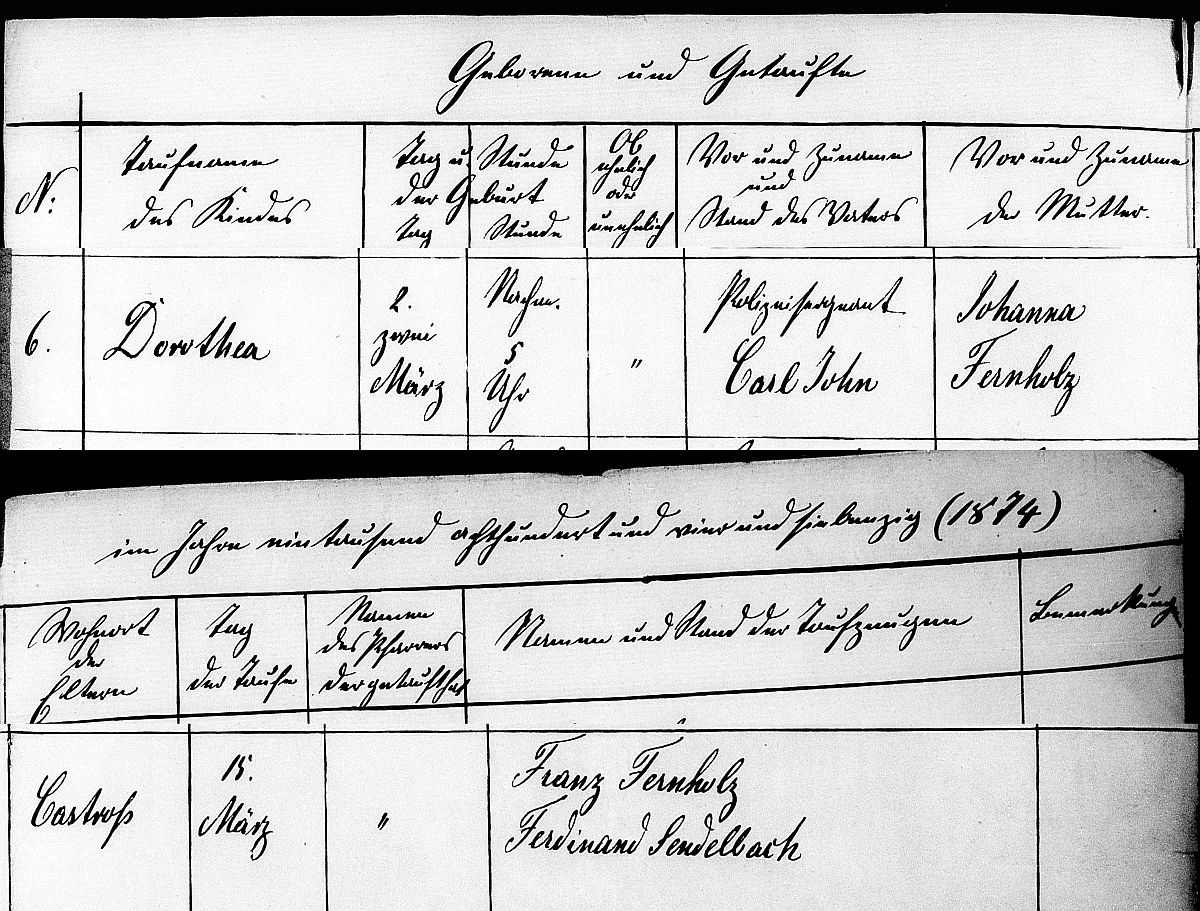 Geborene und Getaufte
N:
Taufname
des Kindes
Tag u. Stunde
der Geburt
Tag
Stunde
Ob
ehelich
oder
unehelich
Vor und Zuname
und
Stand des Vaters
Vor und Zuname
der Mutter.
6.
Dorothea
2.
zwei
März
Nachm.
5
Uhr
"
Polizeisergeant
Carl John
Johanna
Fernholz
im Jahre eintausend achthundert und vier und siebenzig (1874)
Wohnort
der
Eltern
Tag
der Taufe
Namen
des Pfarrers
der getauft hat
Namen und Stand der Taufzeugen
Bemerkung
Castrop
15.
März
"
Franz Fernholz
Ferdinand Sendelbach